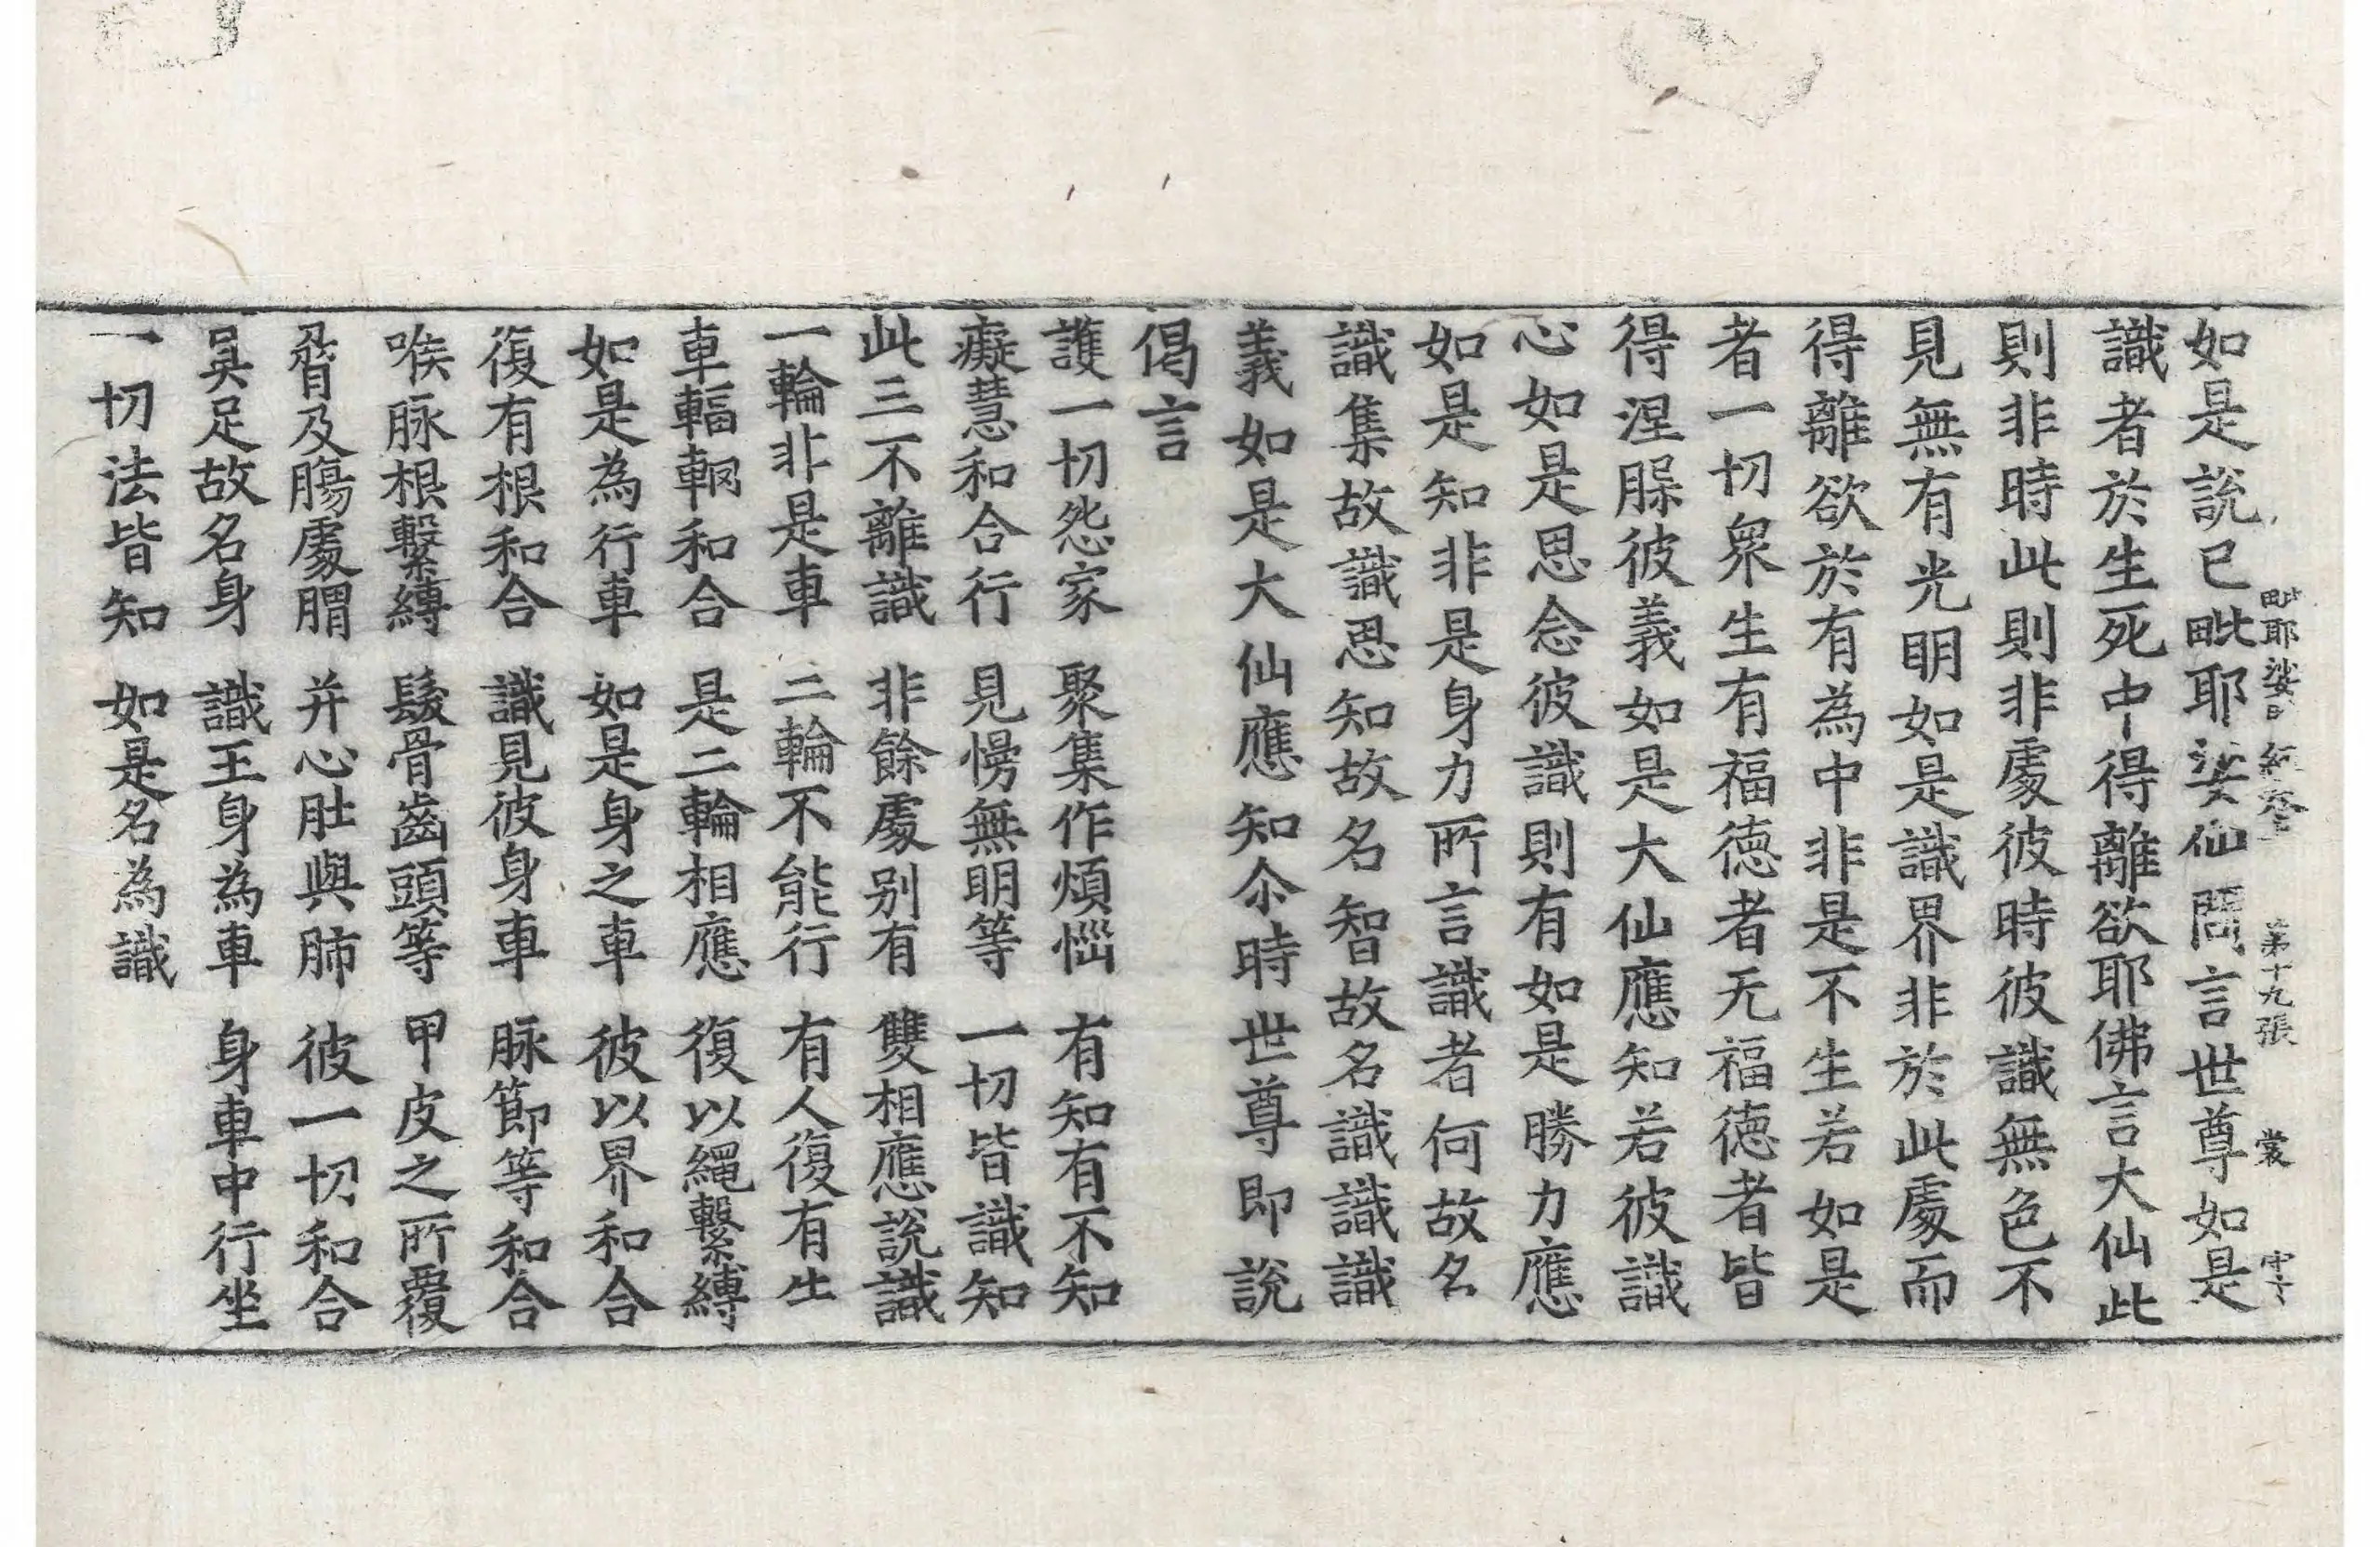 毗耶娑問經卷上 第十九張 裳
如是說已毗耶娑仙問言世尊如是
識者於生死中得離欲耶佛言大仙此
則非時此則非處彼時彼識無色不
見無有光明如是識界非於此處而
得離欲於有為中非是不生若如是
者一切衆生有福德者无福德者皆
得涅槃彼義如是大仙應知若彼識
心如是思念彼識則有如是勝力應
如是知非是身力所言識者何故名
識集故識思知故名智故名識識識
義如是大仙應知尒時世尊即說
偈言
護一切怨家 聚集作煩惱 有知有不知
癡慧和合行 見慢無明等 一切皆識知
此三不離識 非餘處別有 雙相應說識
一輪非是車 二輪不能行 有人復有牛
車輻輞和合 是二輪相應 復以繩繫縛
如是為行車 如是身之車 彼以界和合
復有根和合 識見彼身車 脉節等和合
喉脉根繫縛 髮骨齒頭等 甲皮之所覆
𦙄及膓處䐜 并心肚與肺 彼一切和合
具足故名身 識王身為車 身車中行坐
一切法皆知 如是名為識